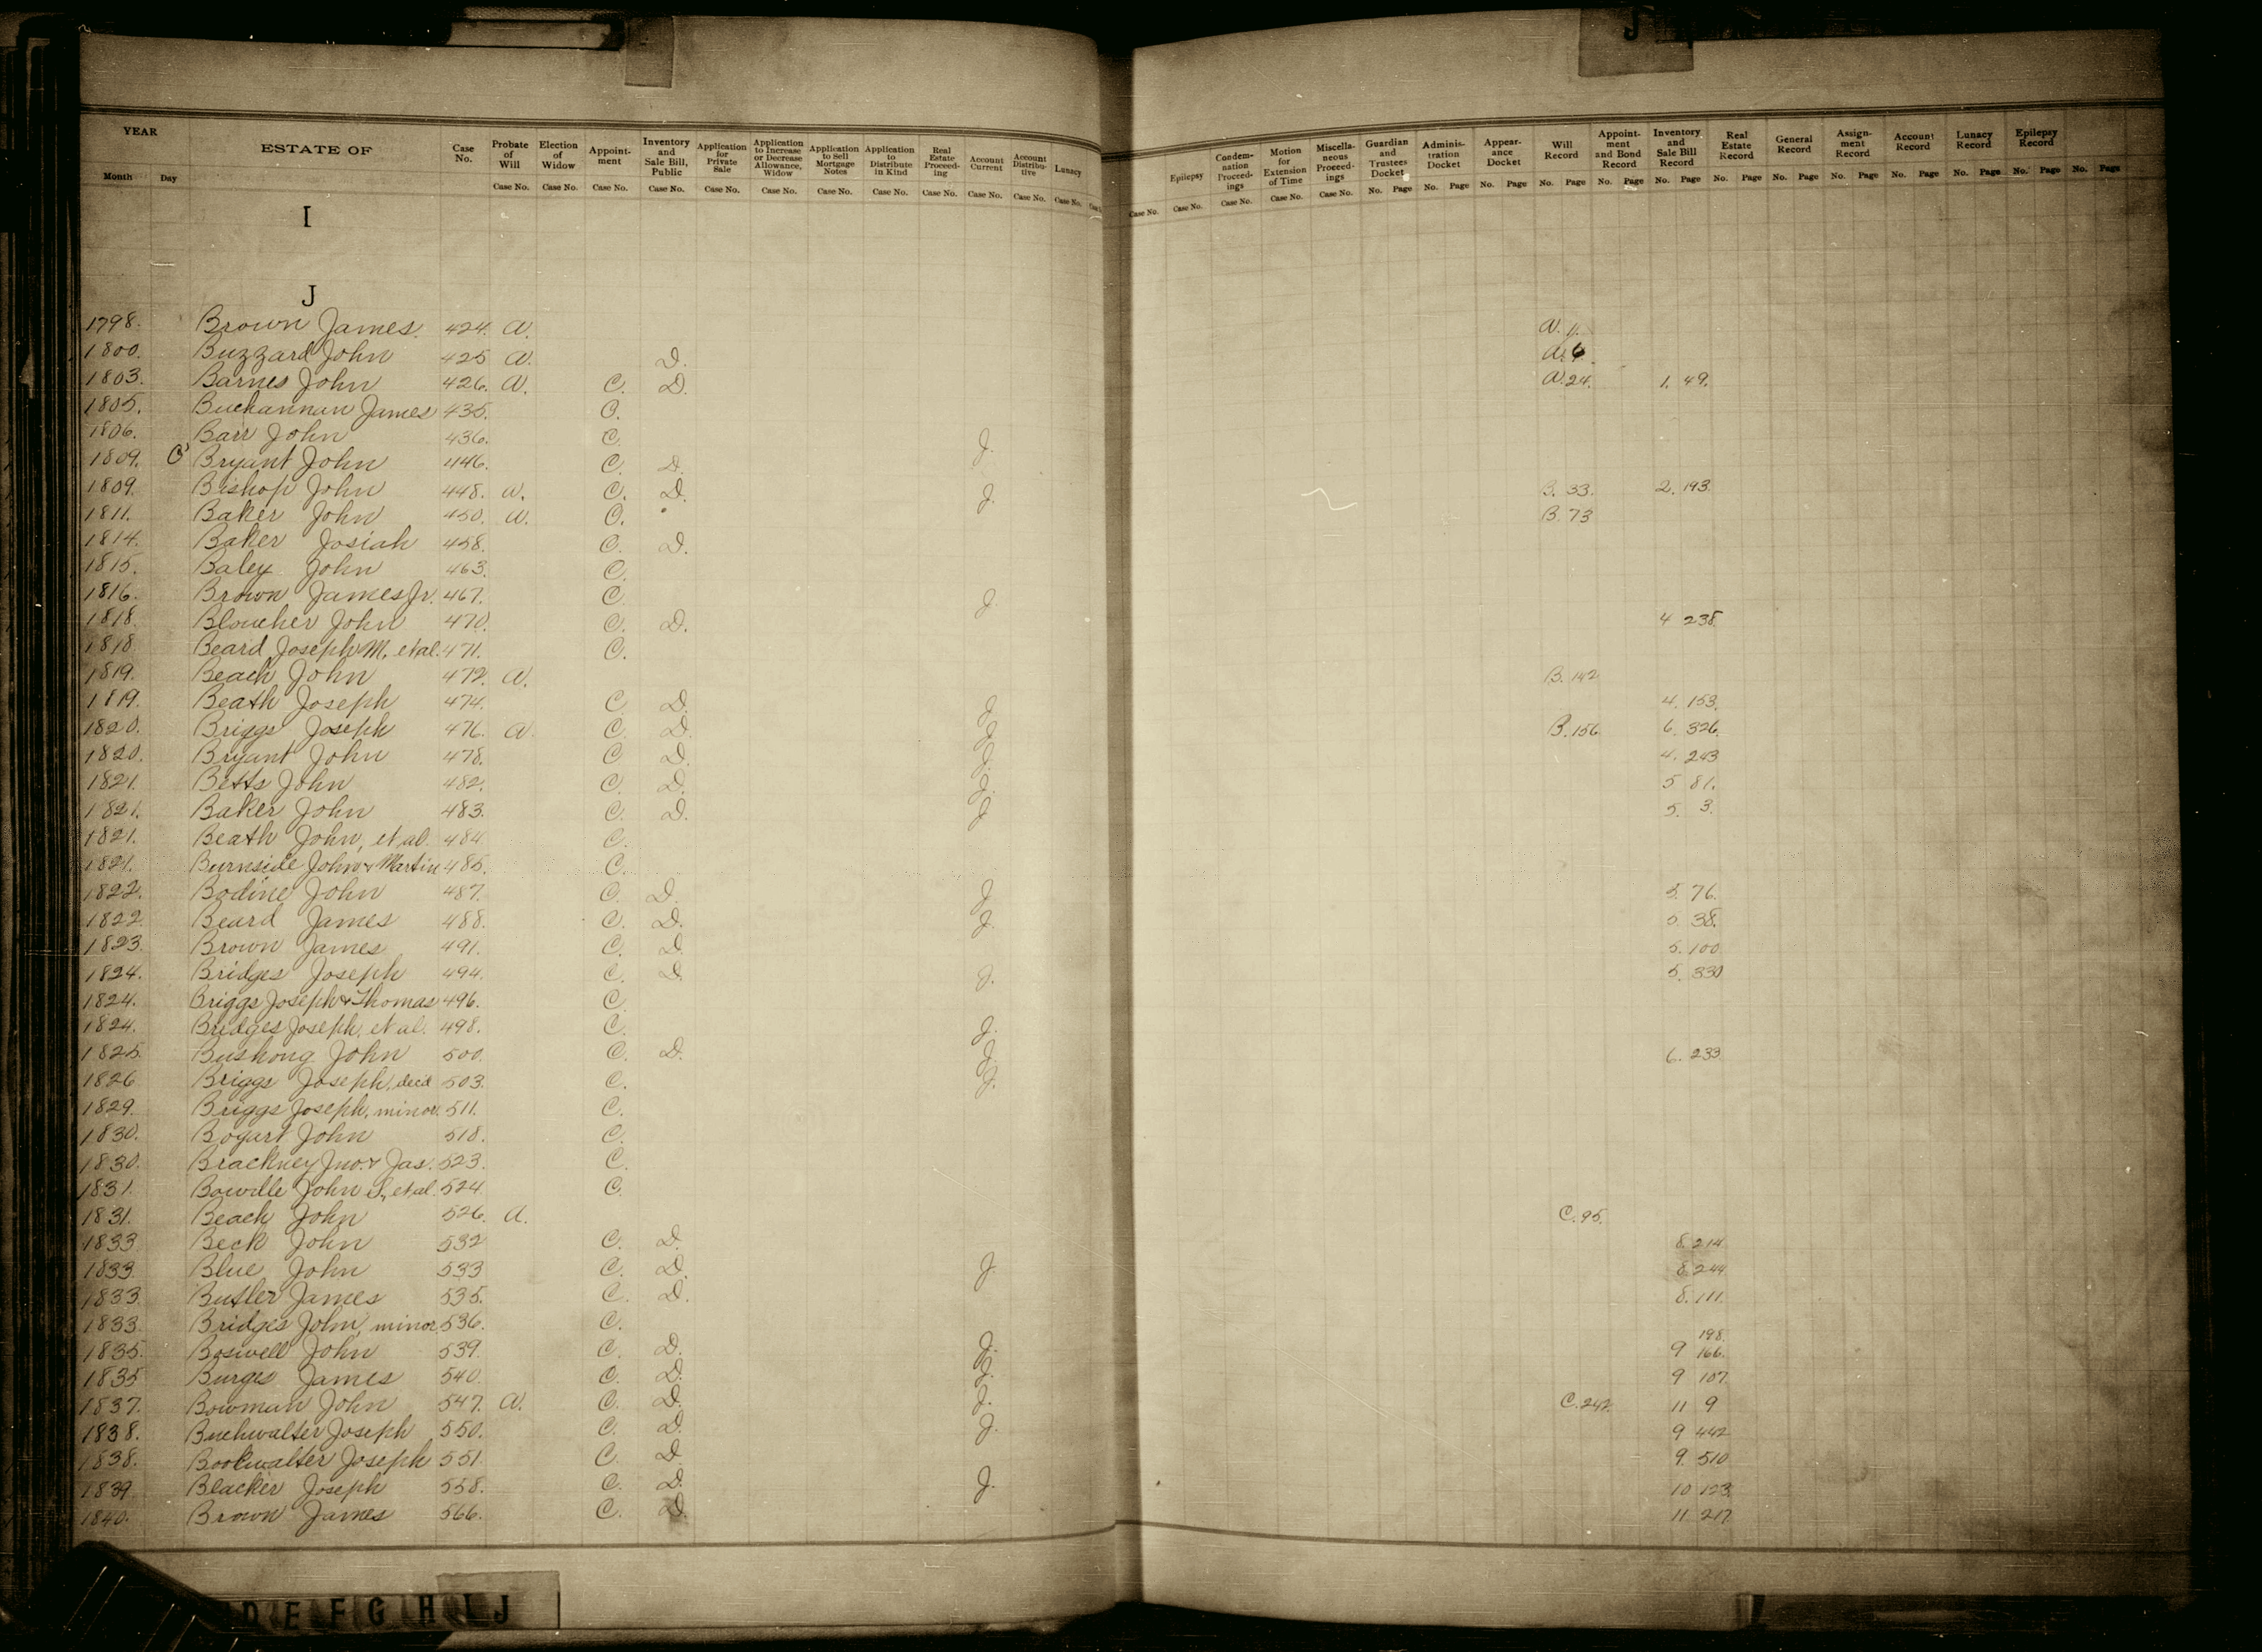 YEAR
Month Day
ESTATE OF
Case No.
Probate of Will Case No.
Election of Widow Case No.
Appoint-ment Case No.
Inventory and Sale Bill, Public Case No.
Application for Private Sale Case No.
Application to Increase or Decrease Allowance, Widow Case No.
Application to Sell Mortgage Notes Case No.
Application to Distribute in Kind Case No.
Real Estate Proceed-ing Case No.
Account Current Case No.
Account Distribu-tive Case No.
Lunacy Case No.
Case No.
Epilepsy Case No.
Condem-nation Proceed-ings Case No.
Motion for Extension of Time Case No.
Miscella-neous Proceed-ings Case No.
Guardian and Trustees Docket No. Page
Adminis-tration Docket No. Page
Appear-ance Docket No. Page
Will Record No. Page
Appoint-ment and Bond Record No. Page
Inventory and Sale Bill Record No. Page
Real Estate Record No. Page
General Record No. Page
Assign-ment Record No. Page
Account Record No. Page
Lunacy Record No. Page
Epilepsy Record No. Page
No. Page
I
J
1798. Brown James. 424. A. A. 1.
1800. Buzzard John 425 A. D. A. 6
1803. Barnes John 426. A. C. D. A. 24. 1. 49.
1805. Buckannan James 435. C.
1806. Barr John 436. C. J.
1809. Bryant John 446. C. D.
1809. Bishop John 448. A. C. D. J. B. 33. 2. 193.
1811. Baker John 450. A. C. B. 73
1814. Baker Josiah 458. C. D.
1815. Baley John 463. C.
1816. Brown James Jr. 467. C. J.
1818. Bloucher John 470. C. D. 4 238.
1818 Beard Joseph M. et al. 471. C.
1819. Beach John 472. A. B. 142
1819. Beath Joseph 474. C. D. J. 4. 153.
1820. Briggs Joseph 476. A. C. D. J. B. 156. 6. 326.
1820. Bryant John 478. C D. J. 4. 243
1821. Betts John 482. C. D. J. 5 81.
1821. Baker John 483. C. D. J 5. 3.
1821. Beath John, et al. 484 C.
1821. Burnside John & Martin 485. C.
1822. Bodine John 487. C. D. J 5. 76.
1822 Beard James 488. C. D. J. 5. 38.
1823. Brown James 491. C. D. 5. 100
1824. Bridges Joseph 494. C. D. J. 5. 330
1824. Briggs Joseph & Thomas 496. C.
1824. Bridges Joseph, et al. 498. C. J.
1825. Bushong John 500. C. D. J. 6. 233
1826 Briggs Joseph, decd 503. C. J.
1829. Briggs Joseph, minor 511. C.
1830. Bogart John 518. C.
1830. Brackney Jno. & Jas. 523. C.
1831. Bowdle John S. et al. 524 C.
1831. Beach John 526. A. C. 95.
1833 Beck John 532 C. D. 8. 214
1833. Blue John 533 C. D. J. 8. 244
1833 Butler James 535. C. D. 8. 111.
1833. Bridges John, minor 536. C.
198.
1835. Boswell John 539. C. D. J. 9 166.
1835 Burges James 540. C. D. J. 9 107.
1837. Bowman John 547. A. C. D. J. C. 242. 11 9
1838. Buchwalter Joseph 550. C. D. J. 9 442
1838. Bookwalter Joseph 551. C. D 9. 510
1839. Blacker Joseph 558. C. D. J. 10 123.
1840. Brown James 566. C. D. 11 217.
D E F G H I J